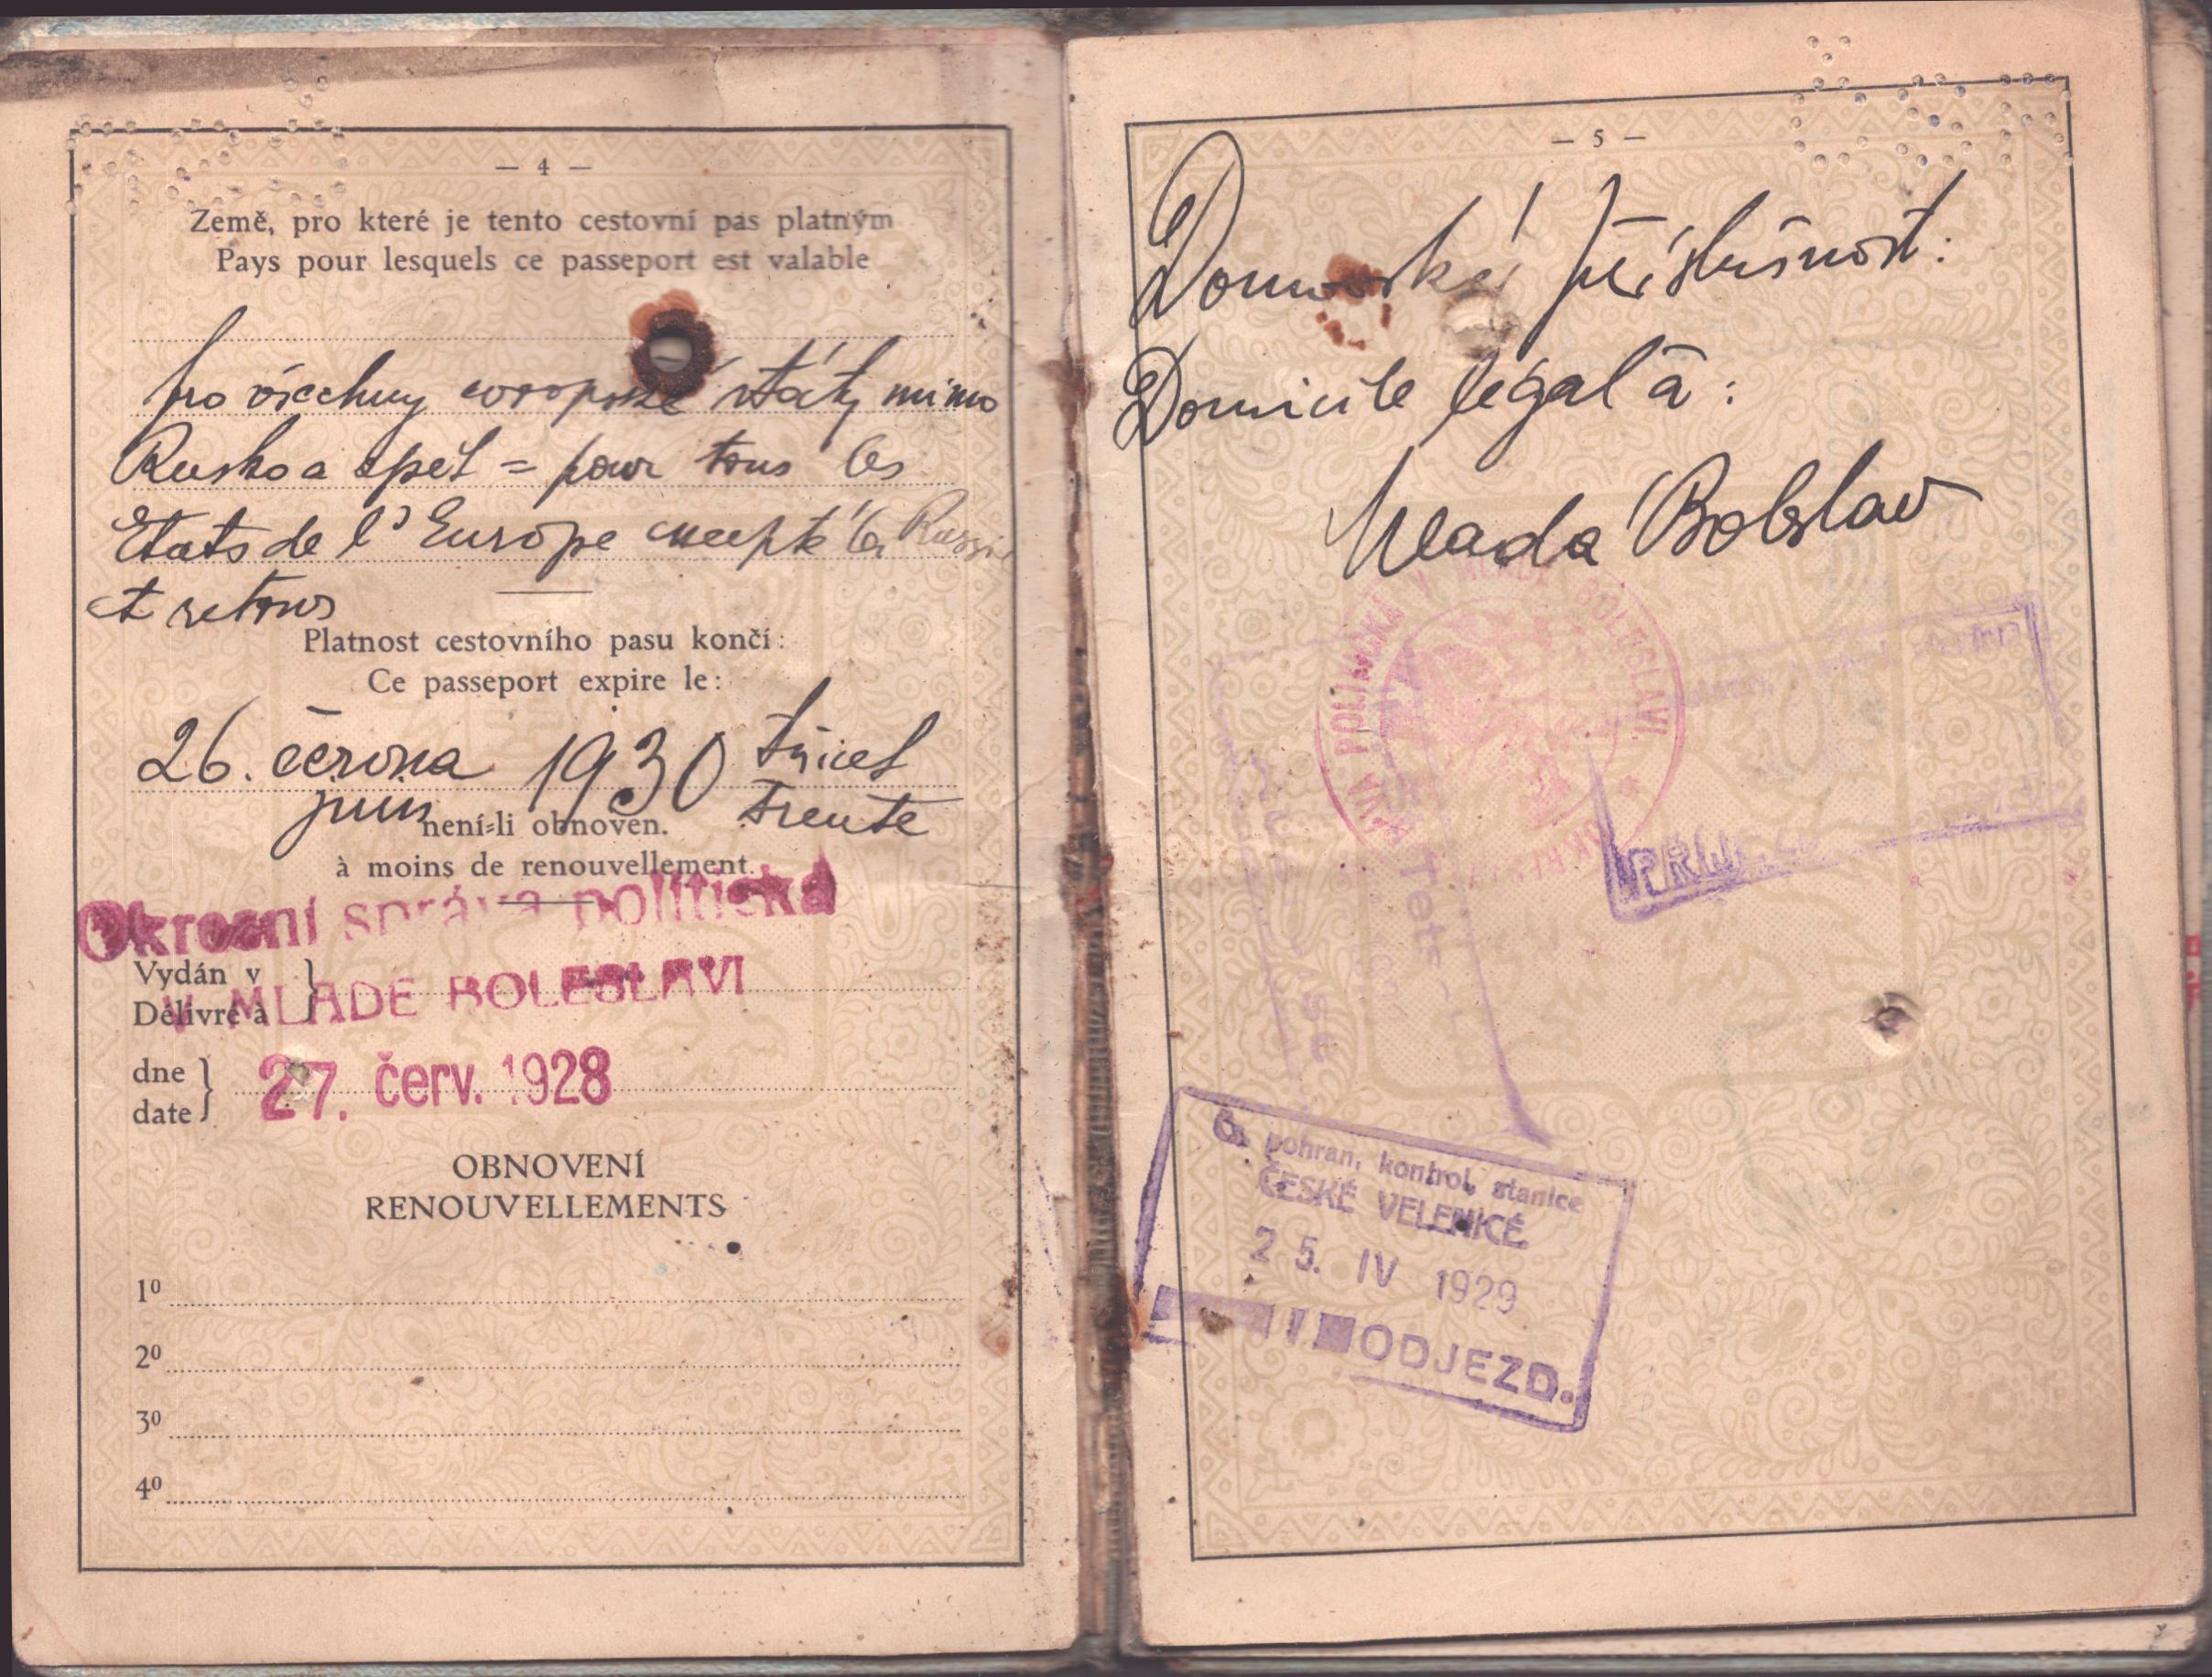 — 4 —
Země, pro které je tento cestovní pas platným
Pays pour lesquels ce passeport est valable
pro všechny evropské státy mimo
Rusko a zpět = pour tous les
Etats de l'Europe excepté la Russie
et retour
Platnost cestovního pasu končí:
Ce passeport expire le:
26. června 1930 třicet
juin trente
není-li obnoven.
à moins de renouvellement.
Okresní správa politická
Vydán v
V MLADÉ BOLESLAVI
Délivré à
dne
27. červ. 1928
date
OBNOVENÍ
RENOUVELLEMENTS
1º
2º
3º
4º
— 5 —
Domovská příslušnost:
Domicile légal à:
Mladá Boleslav
SPRÁVA POLITICKÁ V MLADÉ BOLESLAVI
Čs. pohran. kontrol. stanice
ČESKÉ VELENICE
25. IV 1929
ODJEZD.